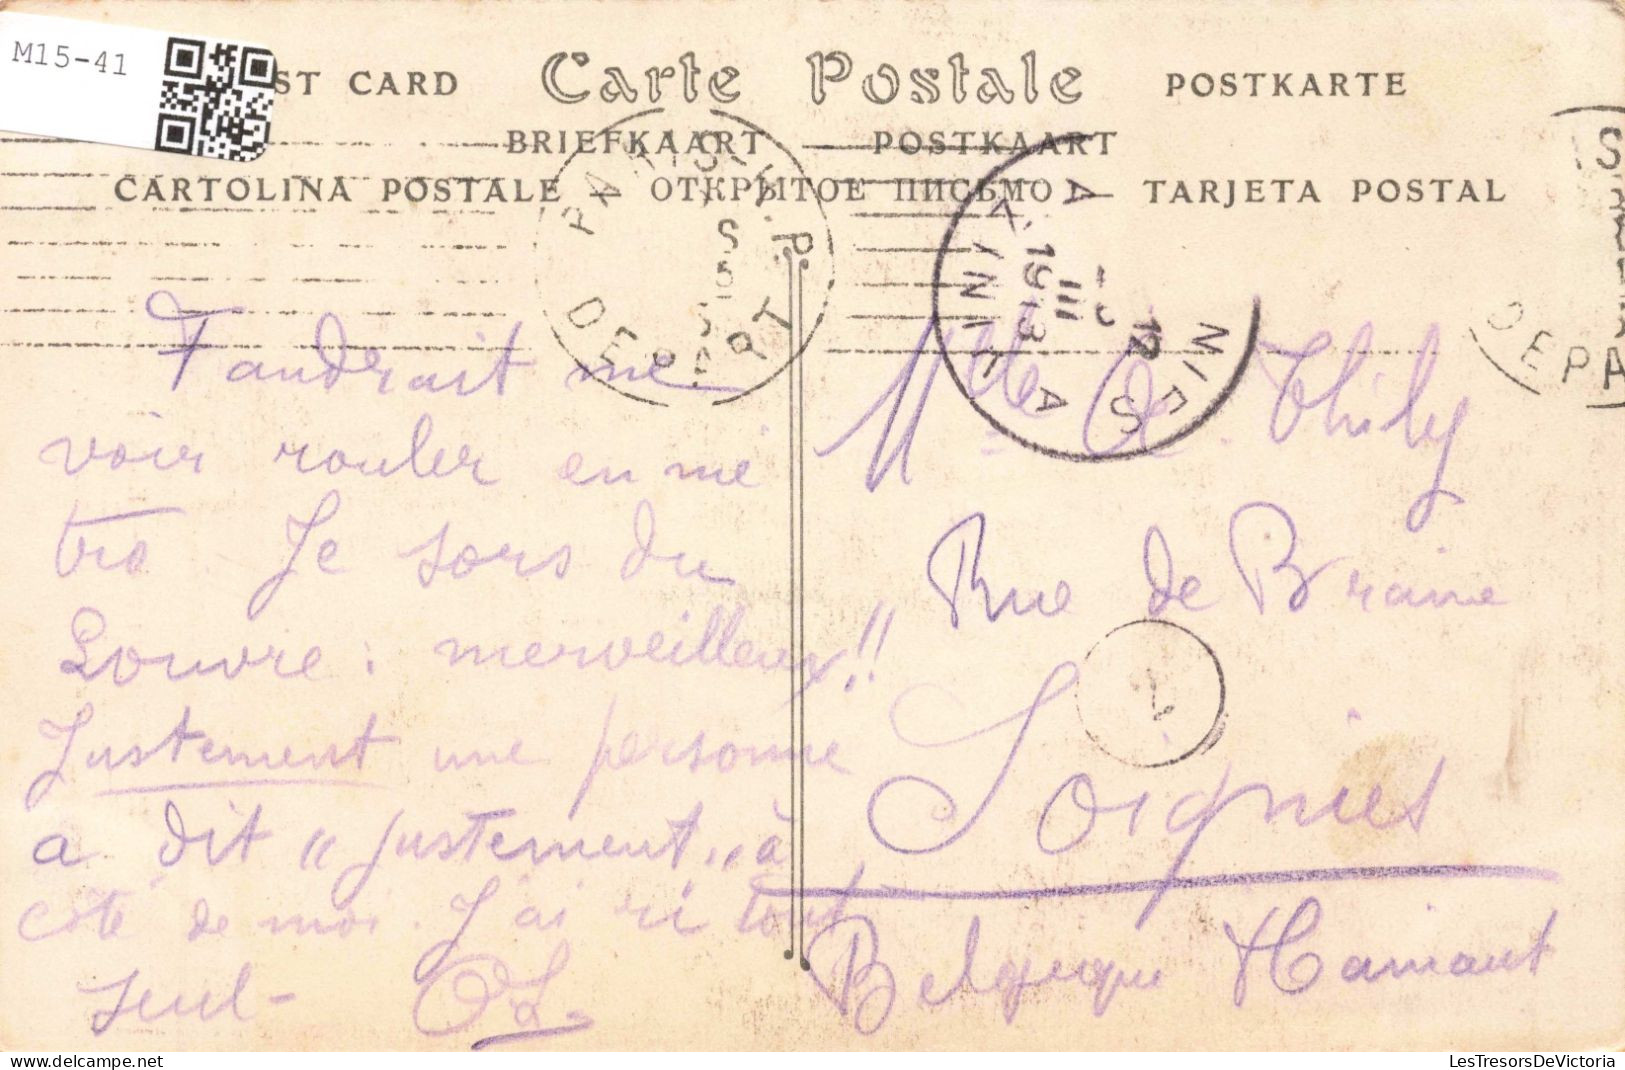 M15-41
ST CARD Carte Postale POSTKARTE
BRIEFKAART — POSTKAART
CARTOLINA POSTALE — ОТКРЫТОЕ ПИСЬМО — TARJETA POSTAL
DEPART
1913
12
DEPA
Faudrait me
voir rouler en mé
tro. Je sors du
Louvre : merveilleux!!
Justement une personne
a dit " justement " à
côté de moi. J'ai ri tout
seul -
Mlle Thily
Rue de Braine
Soignies
Belgique Hainaut
LesTresorsDeVictoria